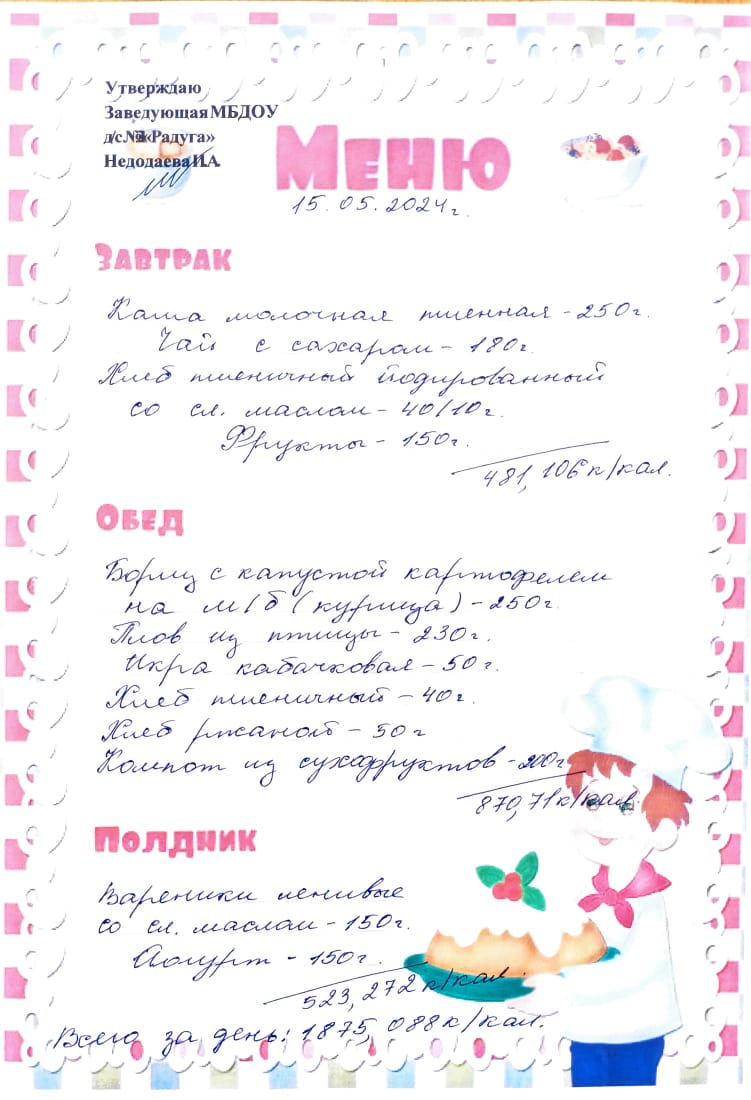 Утверждаю
Заведующая МБДОУ
д/с «Радуга»
Недодаева И.А.
Меню
15.05.2024г.
Завтрак
Каша молочная пшенная - 250г.
Чай с сахаром - 180г.
Хлеб пшеничный йодированный
со сл. маслом - 40/10г.
Фрукты - 150г.
481,106к/кал.
Обед
Борщ с капустой картофелем
на м/б (курица) - 250г.
Плов из птицы - 230г.
Икра кабачковая - 50г.
Хлеб пшеничный - 40г.
Хлеб ржаной - 50г
Компот из сухофруктов - 200г
870,71к/кал.
Полдник
Вареники ленивые
со сл. маслом - 150г.
Йогурт - 150г.
523,272к/кал.
Всего за день: 1875,088к/кал.